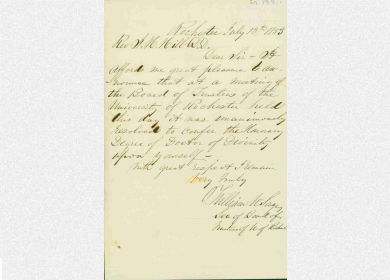 Rochester July 12th 1853
Rev. J. H. Hill D.D.
Dear Sir - It
affords me great pleasure to an-
nounce that at a meeting of
the Board of Trustees of the
University of Rochester held
this day it was unanimously
resolved to confer the Honorary
Degree of Doctor of Divinity
upon yourself -
With great respect I remain
Very truly
William N. Sage
Sec of Board of
Trustees of U of Roch